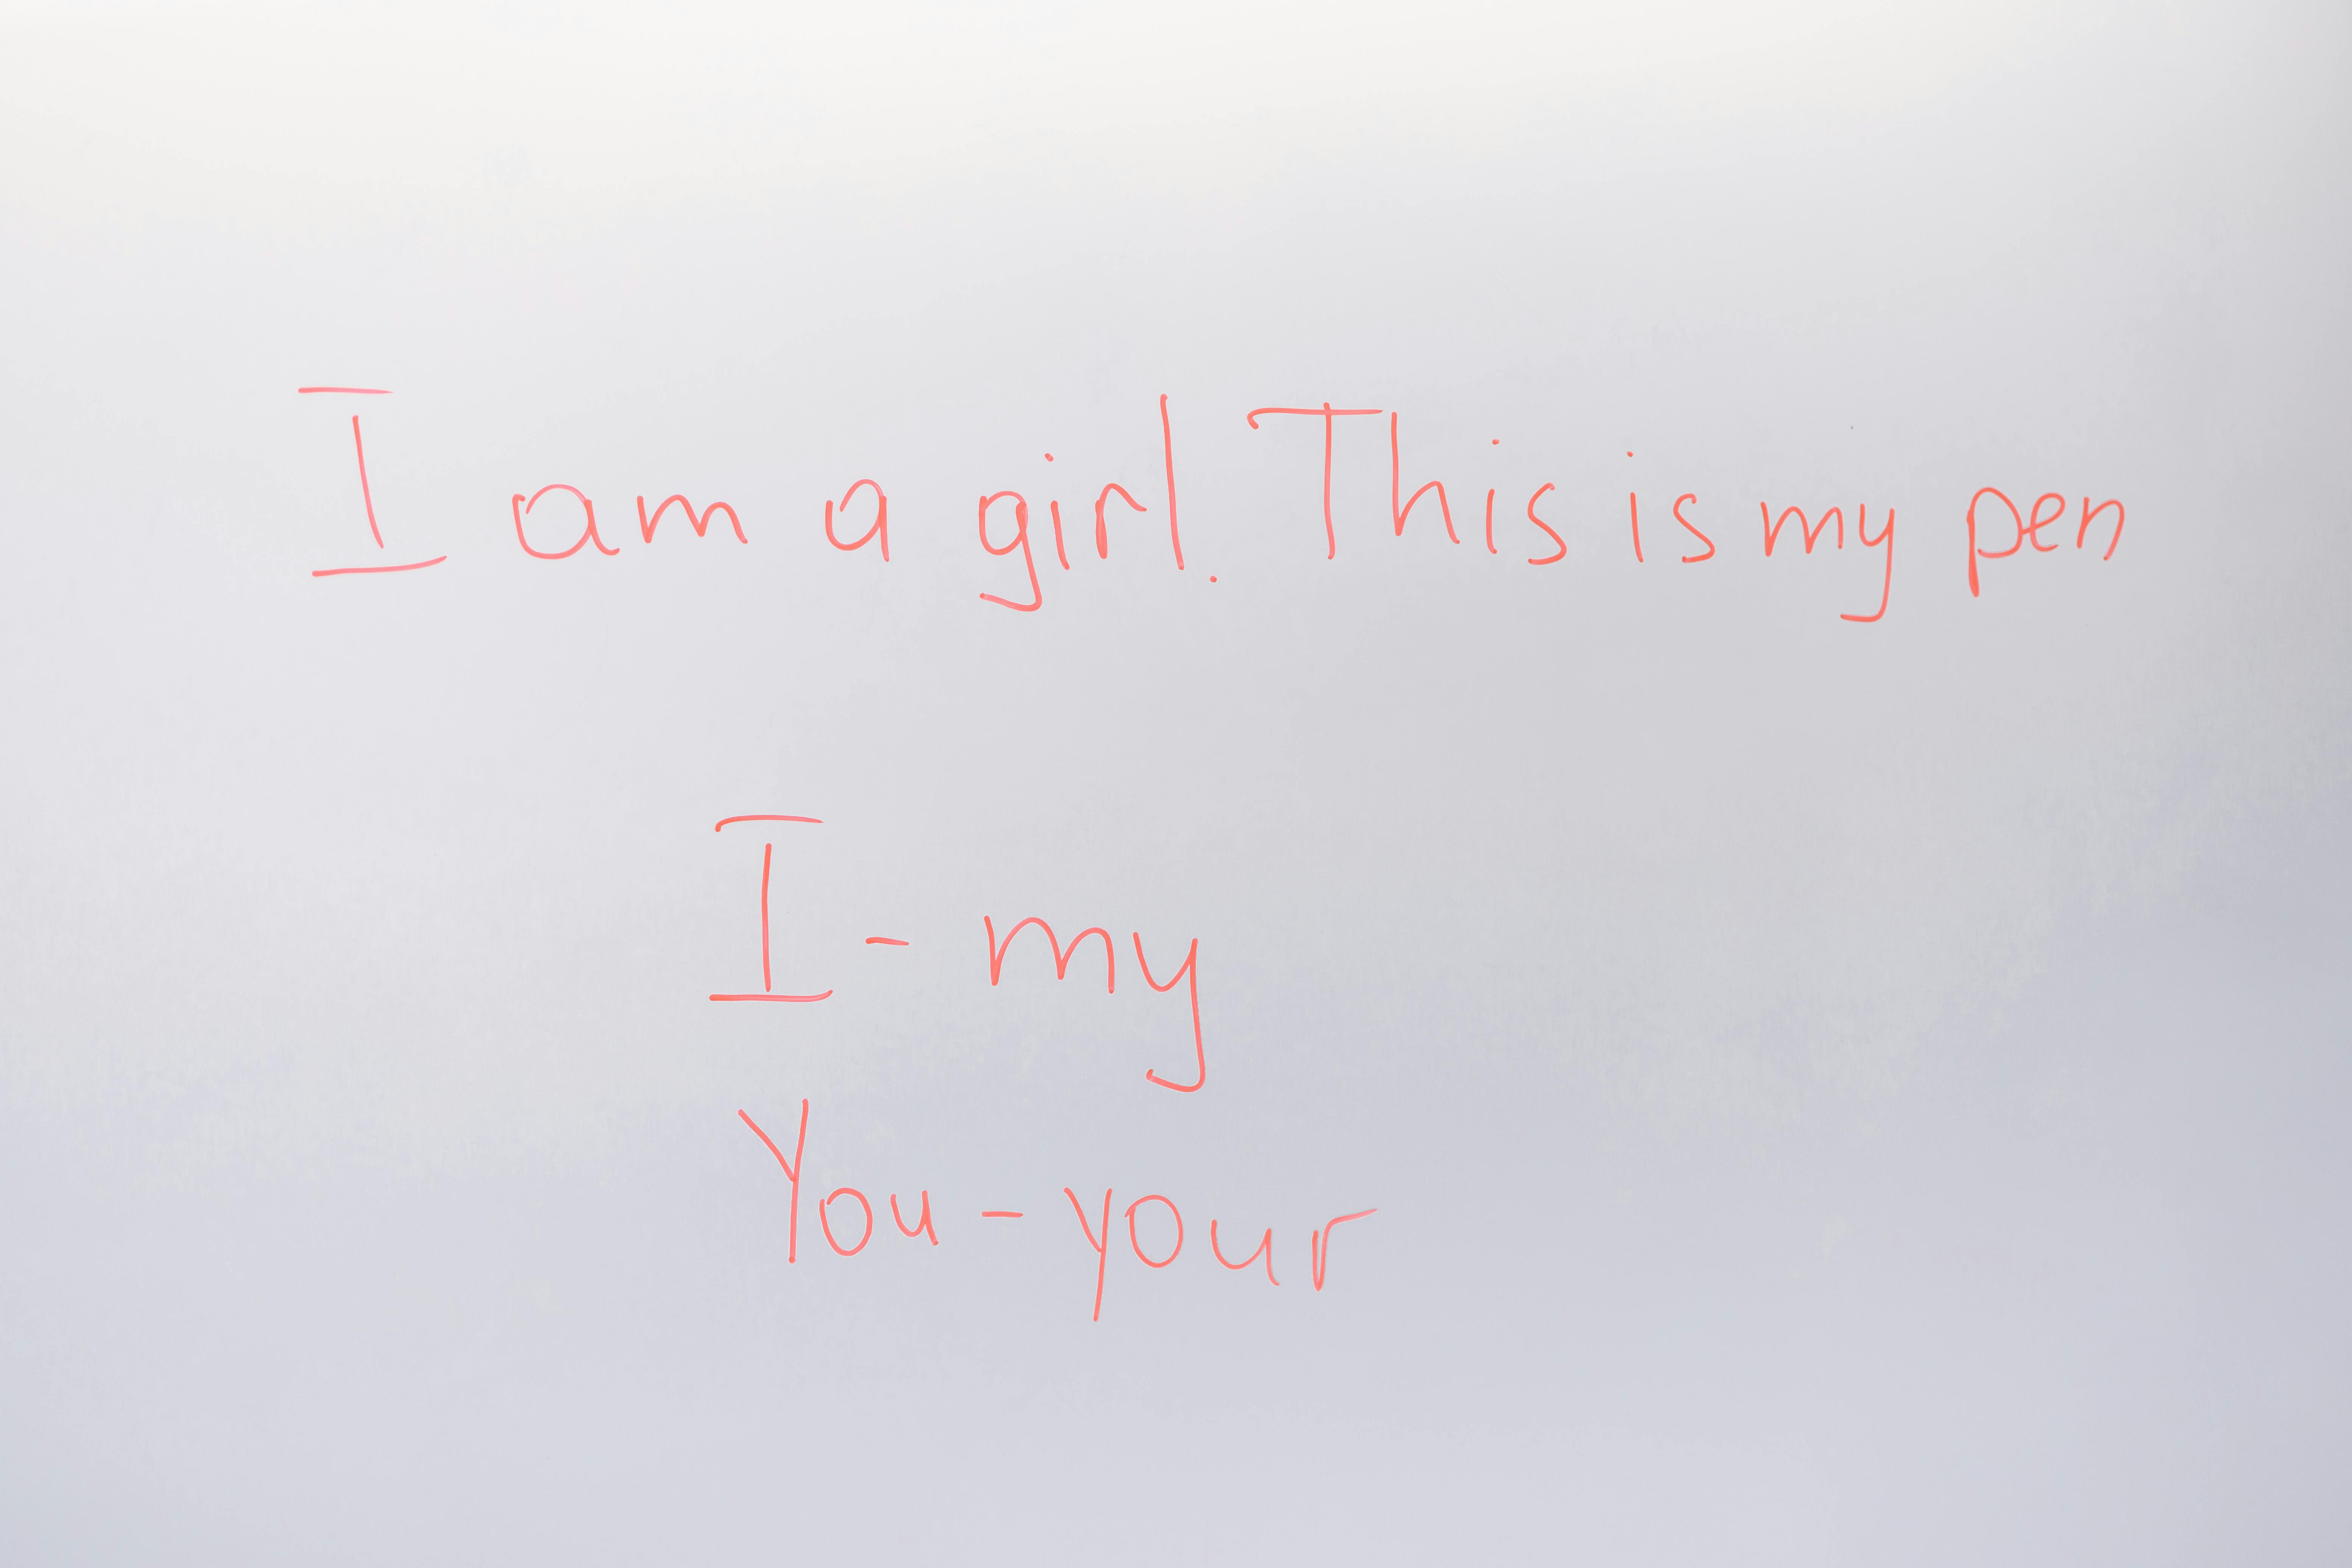 I am a girl. This is my pen
I - my
You - your